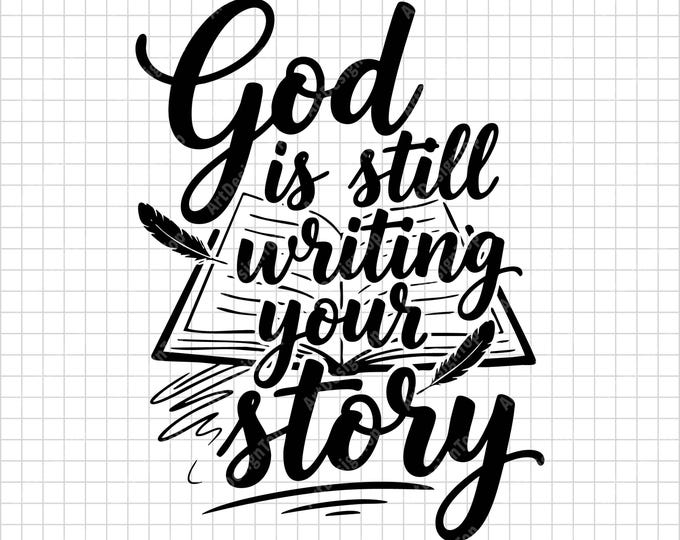 God
is still
writing
your
story